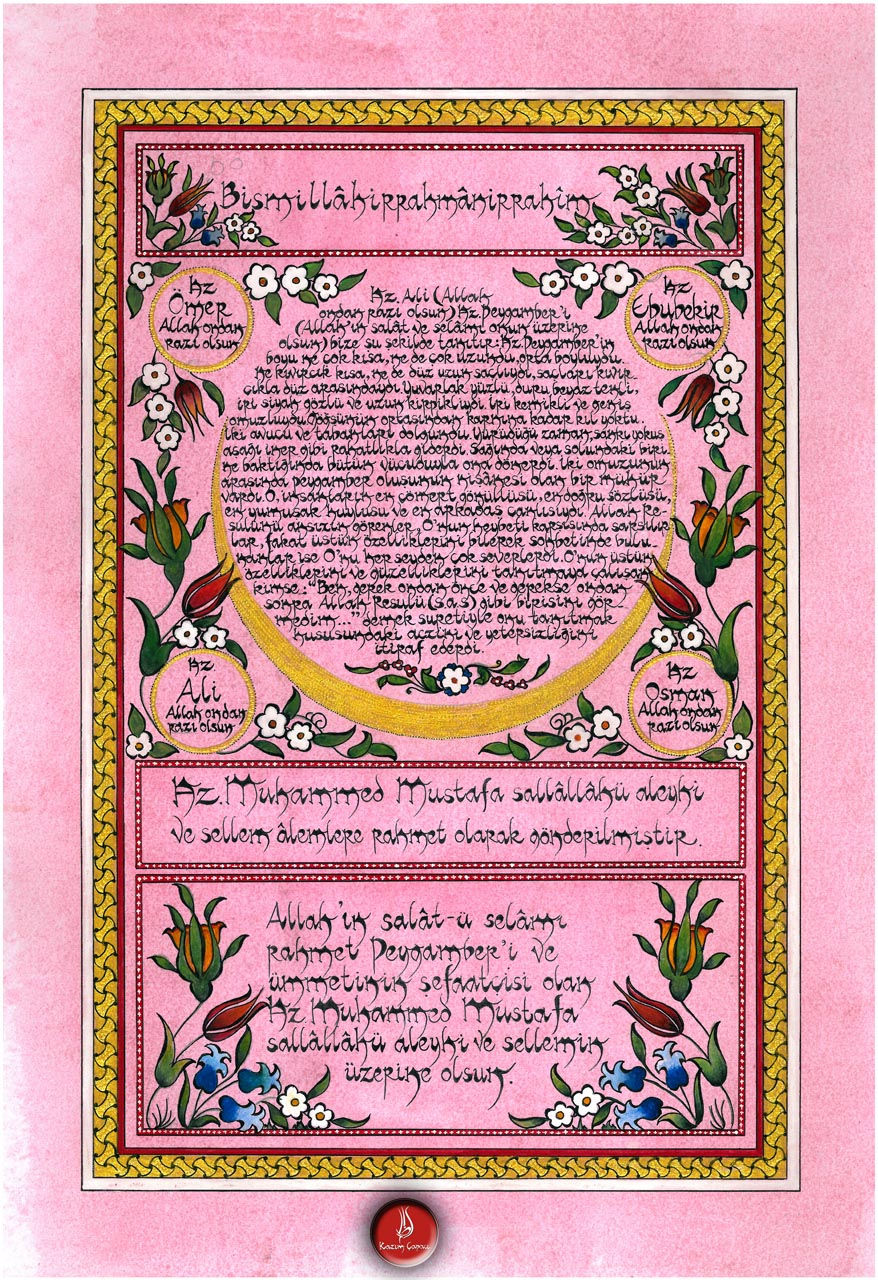 Bismillâhirrahmânirrahîm
Hz
Ömer
Allah ondan
razı olsun
Hz
Ebubekir
Allah ondan
razı olsun
Hz. Ali (Allah
ondan razı olsun) Hz. Peygamber'i
(Allah'ın salât ve selâmı onun üzerine
olsun) bize şu şekilde tanıtır: Hz. Peygamber'in
boyu ne çok kısa, ne de çok uzundu, orta boyluydu.
Ne kıvırcık kısa, ne de düz uzun saçlıydı, saçları kıvır-
cıkla düz arasındaydı. Yuvarlak yüzlü, duru beyaz tenli,
iri siyah gözlü ve uzun kirpikliydi. İri kemikli ve geniş
omuzluydu. Göğsünün ortasından karnına kadar kıl yoktu.
İki avucu ve tabanları dolgundu. Yürüdüğü zaman, sanki yokuş
aşağı iner gibi rahatlıkla giderdi. Sağında veya solundaki biri-
ne baktığında bütün vücuduyla ona dönerdi. İki omuzunun
arasında peygamber oluşunun nişânesi olan bir mühür
vardı. O, insanların en cömert gönüllüsü, en doğru sözlüsü,
en yumuşak huylusu ve en arkadaş canlısıydı. Allah Re-
sulünü ansızın görenler, O'nun heybeti karşısında sarsılır-
lar, fakat üstün özelliklerini bilerek sohbetinde bulu-
nanlar ise O'nu her şeyden çok severlerdi. O'nun üstün
özelliklerini ve güzelliklerini tanıtmaya çalışan
kimse: "Ben, gerek ondan önce ve gerekse ondan
sonra Allah Resulü (s.a.s) gibi birisini gör-
medim..." demek suretiyle onu tanıtmak
hususundaki aczini ve yetersizliğini
itiraf ederdi.
Hz
Ali
Allah ondan
razı olsun
Hz
Osman
Allah ondan
razı olsun
Hz. Muhammed Mustafa sallâllâhü aleyhi
ve sellem âlemlere rahmet olarak gönderilmiştir.
Allah'ın salât-ü selâmı
rahmet Peygamber'i ve
ümmetinin şefaatçisi olan
Hz. Muhammed Mustafa
sallâllâhü aleyhi ve sellemin
üzerine olsun.